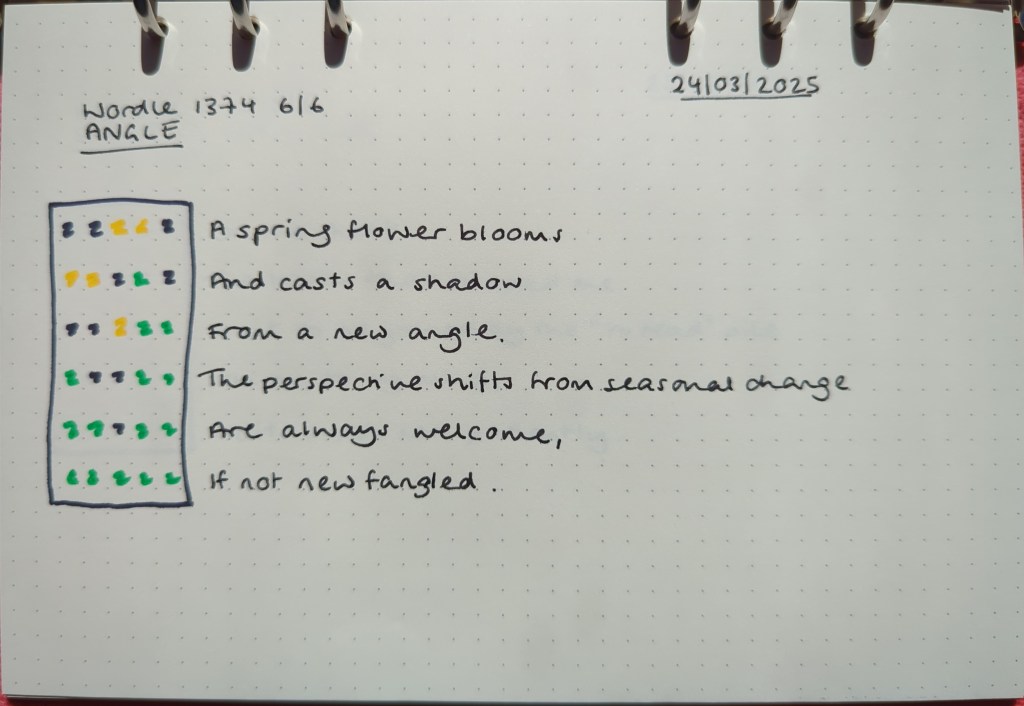 24/03/2025
Wordle 1374 6/6
ANGLE
A spring flower blooms
And casts a shadow
From a new angle.
The perspective shifts from seasonal change
Are always welcome,
If not new fangled.